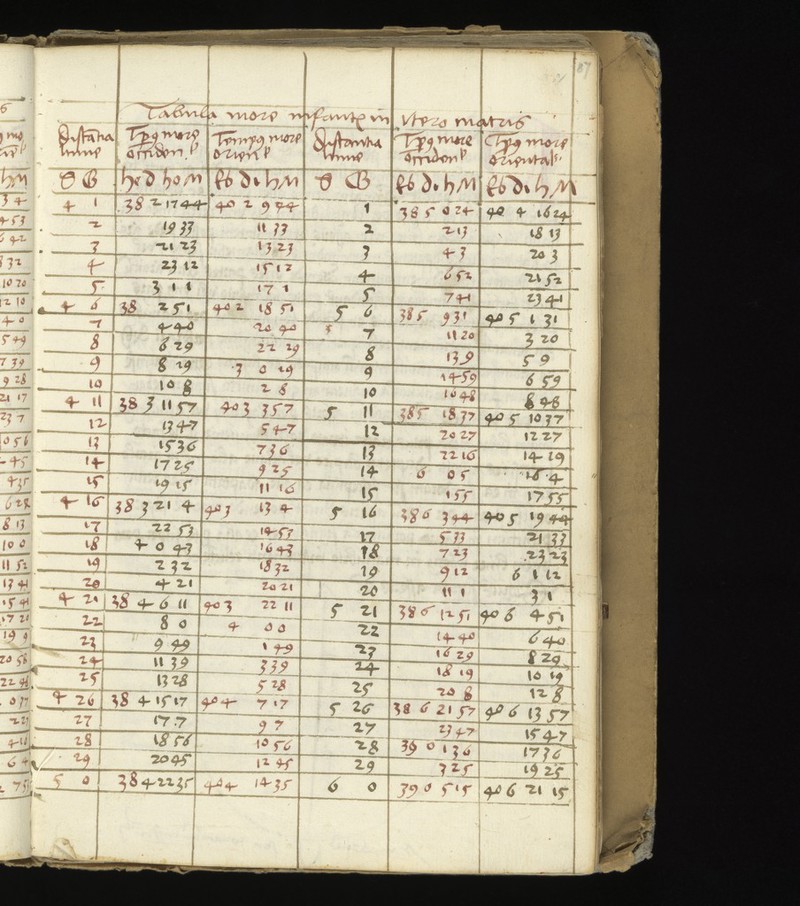 87
Tabula more infantẜ in utero matris
Distãtia lune | Tp9 more occiden. | Tempus more orien | Distantia lune | Tp9 more occiden | Tp9 more oriental
S G | heb d ho M | Eb di h M | S G | Eb di h M | Eb di h M
4 1 | 38 2 17 44 | 40 2 9 44 | 1 | 38 5 0 24 | 40 4 16 24
2 | 19 33 | 11 33 | 2 | 2 13 | 18 13
3 | 21 23 | 13 23 | 3 | 4 3 | 20 3
4 | 23 12 | 15 12 | 4 | 6 52 | 21 52
5 | 3 1 1 | 17 1 | 5 | 7 41 | 23 41
4 6 | 38 2 51 | 40 2 18 51 | 5 6 | 38 5 9 31 | 40 5 1 31
7 | 4 40 | 20 40 | 7 | 11 20 | 3 20
8 | 6 29 | 22 29 | 8 | 13 9 | 5 9
9 | 8 29 | 3 0 29 | 9 | 14 59 | 6 59
10 | 10 8 | 2 8 | 10 | 10 48 | 8 48
4 11 | 38 3 11 57 | 40 3 3 57 | 5 11 | 38 5 18 37 | 40 5 10 37
12 | 13 47 | 5 47 | 12 | 20 27 | 12 27
13 | 15 36 | 7 36 | 13 | 22 16 | 14 19
14 | 17 25 | 9 25 | 14 | 6 0 5 | 16 4
15 | 19 15 | 11 16 | 15 | 1 55 | 17 55
4 16 | 38 3 21 4 | 40 3 13 4 | 5 16 | 38 6 3 44 | 40 5 19 44
17 | 22 53 | 14 53 | 17 | 5 33 | 21 33
18 | 4 0 43 | 16 43 | 18 | 7 23 | 23 23
19 | 2 32 | 18 32 | 19 | 9 12 | 6 1 12
20 | 4 21 | 20 21 | 20 | 11 1 | 3 1
4 21 | 38 4 6 11 | 40 3 22 11 | 5 21 | 38 6 12 51 | 40 6 4 51
22 | 8 0 | 4 0 0 | 22 | 14 40 | 6 40
23 | 9 49 | 1 49 | 23 | 16 29 | 8 29
24 | 11 39 | 3 39 | 24 | 18 19 | 10 19
25 | 13 28 | 5 28 | 25 | 20 8 | 12 8
4 26 | 38 4 15 17 | 40 4 7 17 | 5 26 | 38 6 21 57 | 40 6 13 57
27 | 17 7 | 9 7 | 27 | 23 47 | 15 47
28 | 18 56 | 10 56 | 28 | 39 0 1 36 | 17 36
29 | 20 45 | 12 45 | 29 | 3 25 | 19 25
5 0 | 38 4 22 35 | 40 4 14 35 | 6 0 | 39 0 5 15 | 40 6 21 15